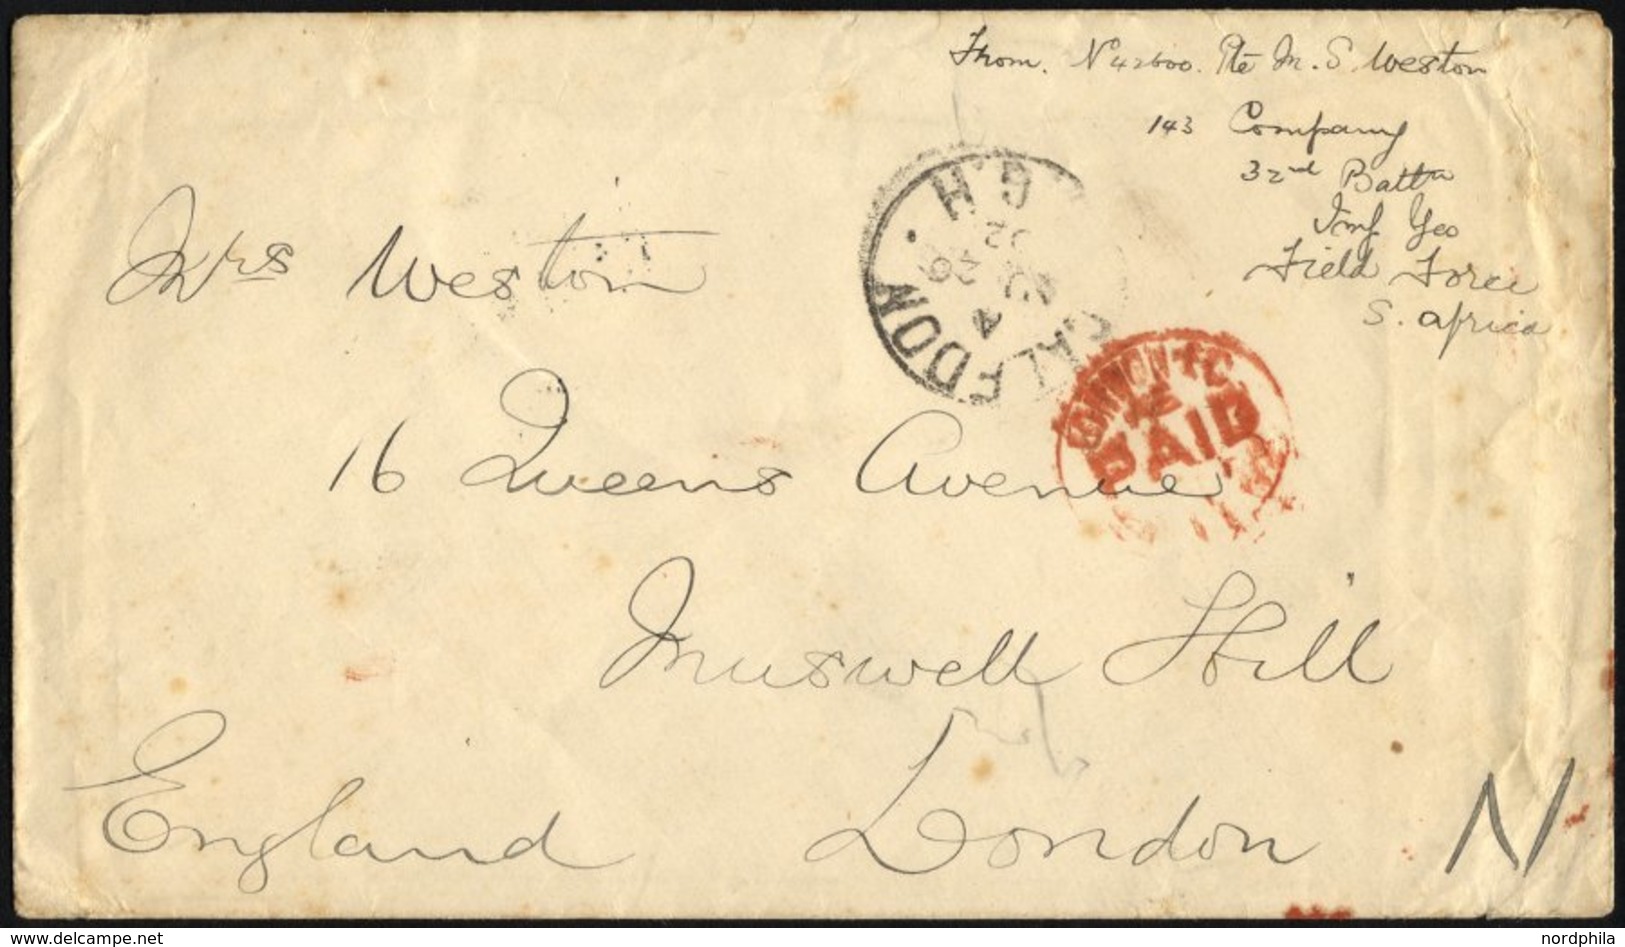 From. N 42600. Pte M. S. Weston
143 Company
32nd Battn
Imp Yeo
Field Force
S. Africa
Mrs Weston
16 Queens Avenue
Muswell Hill
London
England
N
CALEDON
G.H
26
LONDON
PAID
delcampe.net
nordphila